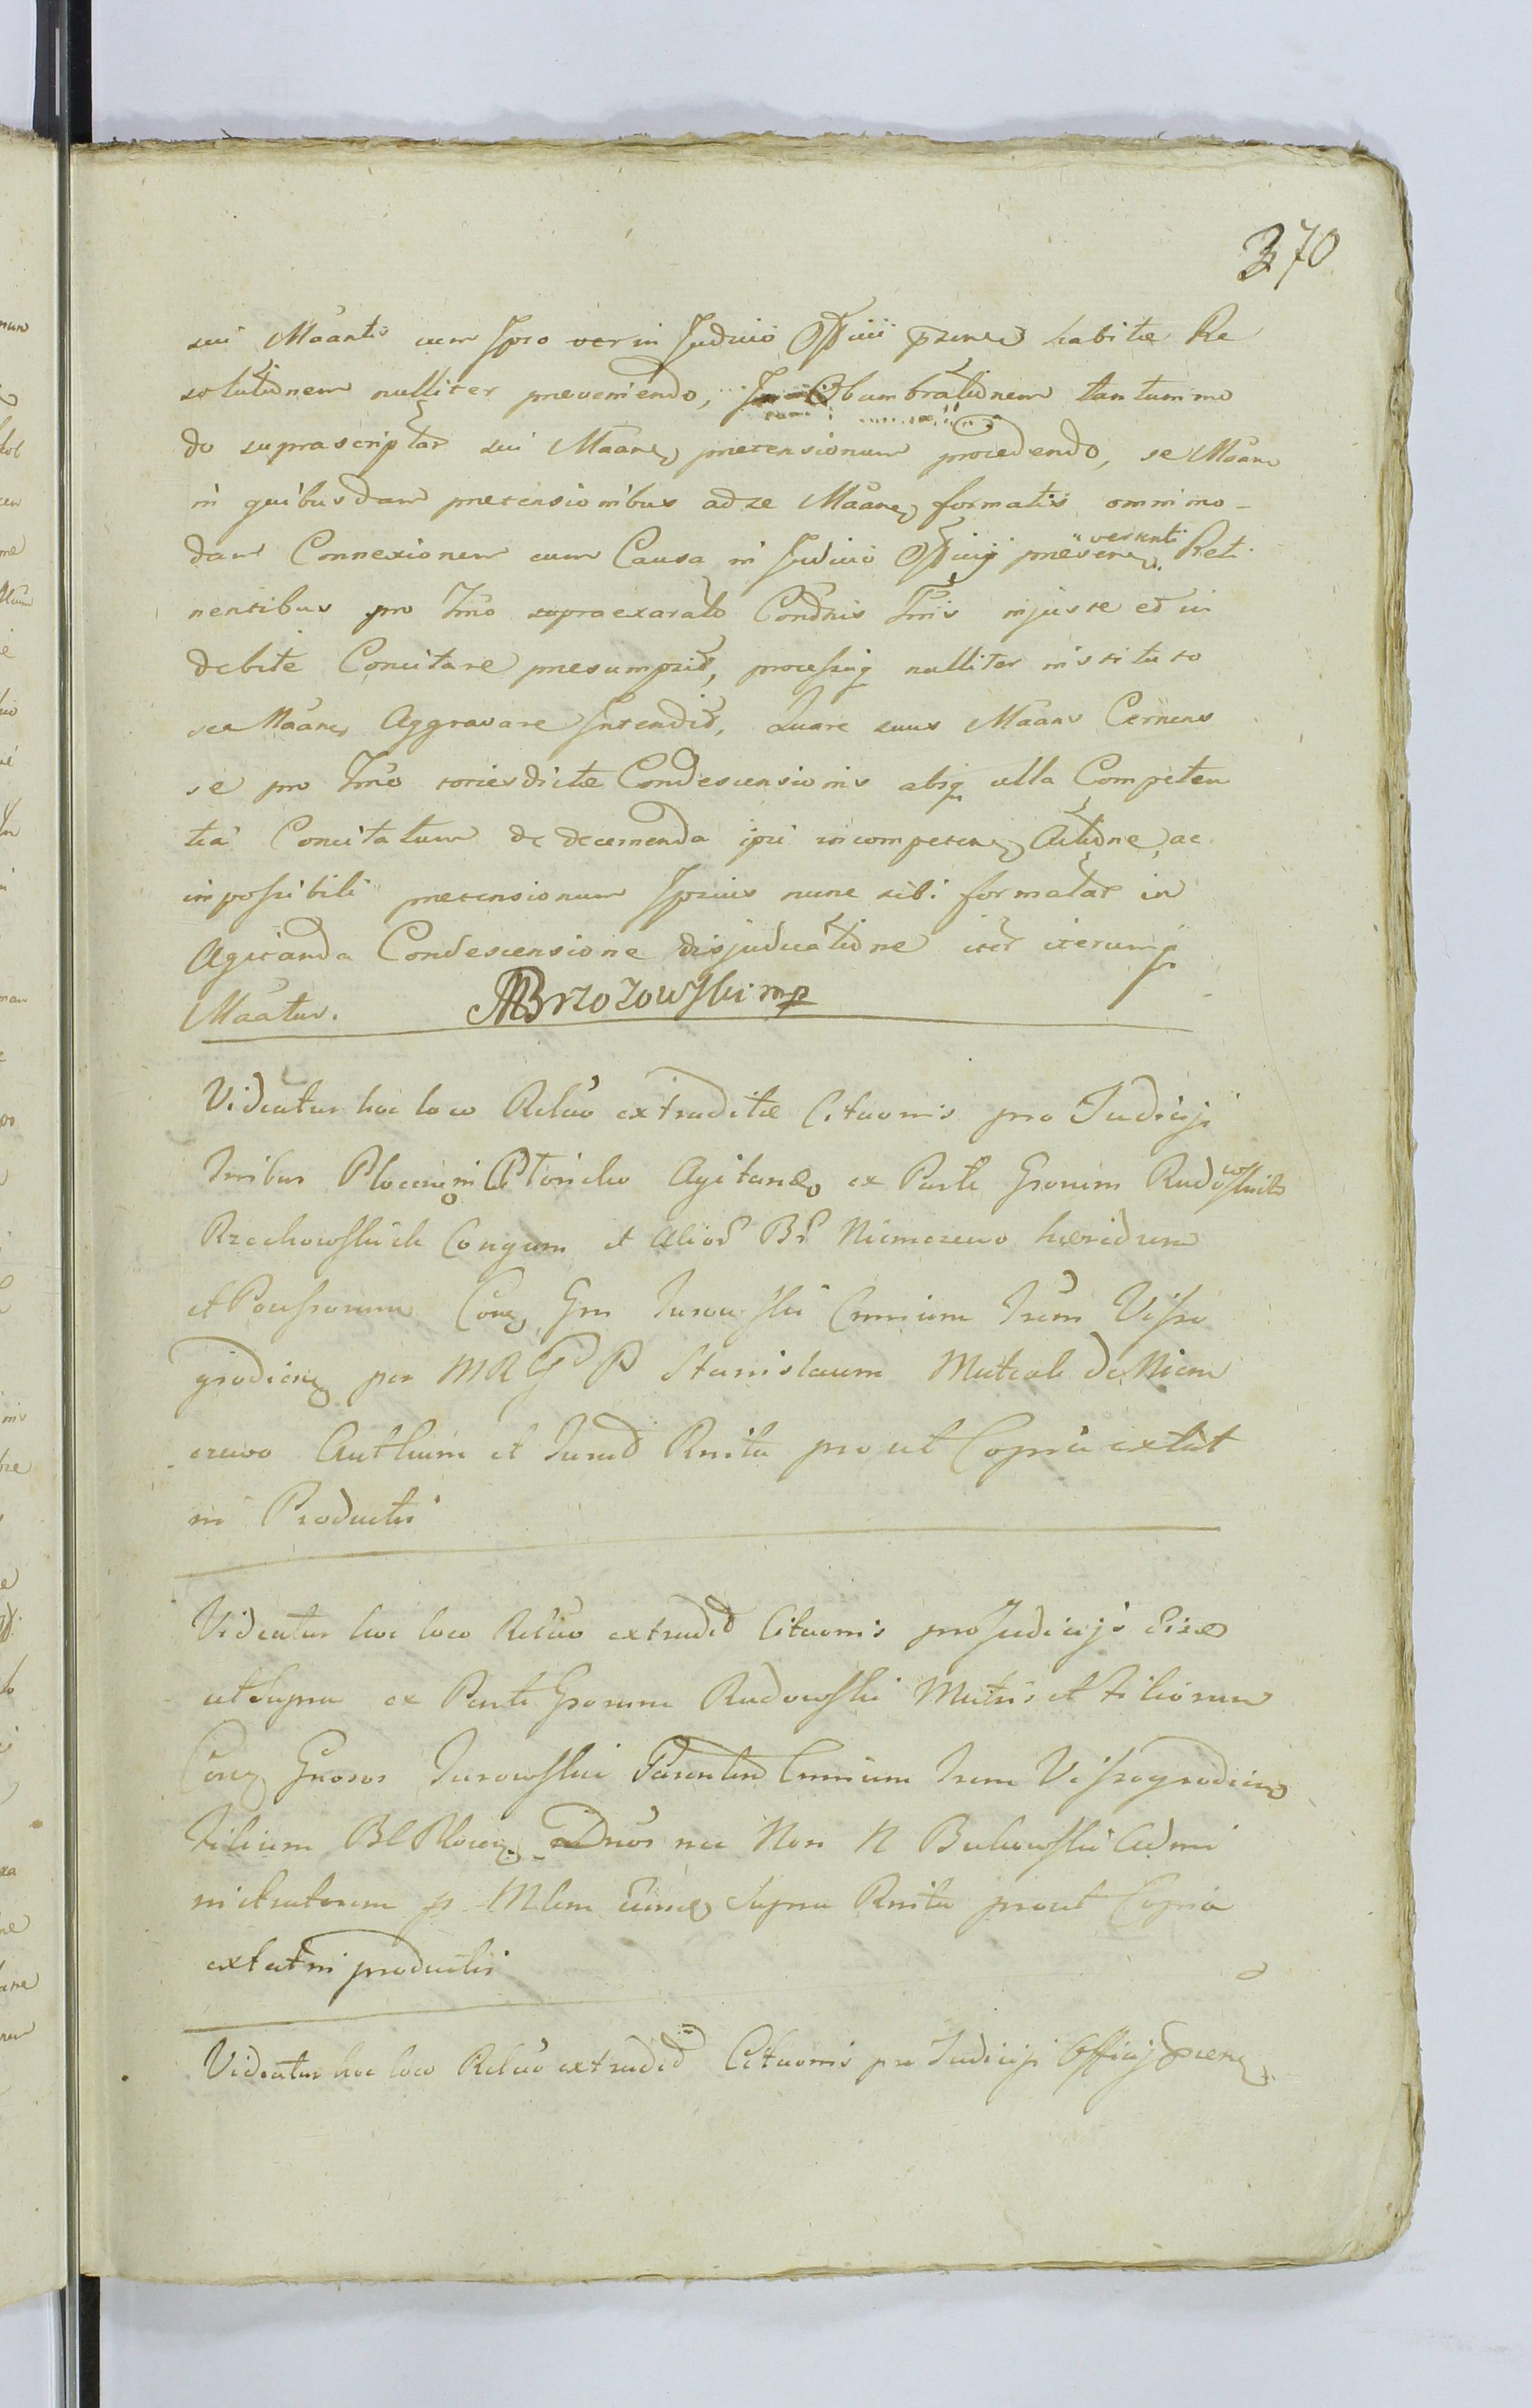 370
sui Maantis cum Ipso ver in Judicio Offcii habitæ Re
solutionem nulliter preveniendo, In Obumbrationem tantummo
do suprascriptar sui Maan pretensionum procedendo, se Maan
in quibusdam pretensionibus ad se Maane formatis omnimo-
dam Connexionem cum Causa in Judicio Officij versanti Reti
nentibus pro Tmo supraexarato Condnis Tris injuste et in
debite Concitare presumpsit, processuq nulliter instituto
se Maane Aggravare Intendit, Quare suus Maans Cernens
se pro Tmo toties dictæ Condescensionis absq ulla Competen
tia Concitatum de decernenda ipsi incompeten Actione, ac
impossibili pretensionum Ipsius nunc sibi formatar in
Agitanda Condescensione disjudicatione iter iterumq
Maatur. MBrzozowski mp
Videatur hoc loco Relao extraditæ Citaonis pro Judicijs
Tribus Plocen in Płońsko Agitand ex Parte Gsorum Rudowskich
Rzechowskich Congum et alior Br Niemczewo hæredum
et Possessorum Con Gm Jurowski Cmrium Trem Visso
grodien per MRGD P Stanislaum Mutcak de Niem
czewo Authum et Jurad Rnita prout Copia extat
in Productis
Videatur hoc loco Relao extradit Citaonis pro Judicijs Eisd
ut Supra ex Parte Gsorum Rudowski Matris et Filiorum
Con Gnosos Jurowskie Parentem Cmrium Trem Vissogrodien
Filium Bl Plocen Dnos nec Non N Bukowski Admi
nistratorem p Mlem Eund Supra Rnita prout Copia
extat in productis
Videatur hoc loco Relao extradit Citaonis pro Judicijs Officij